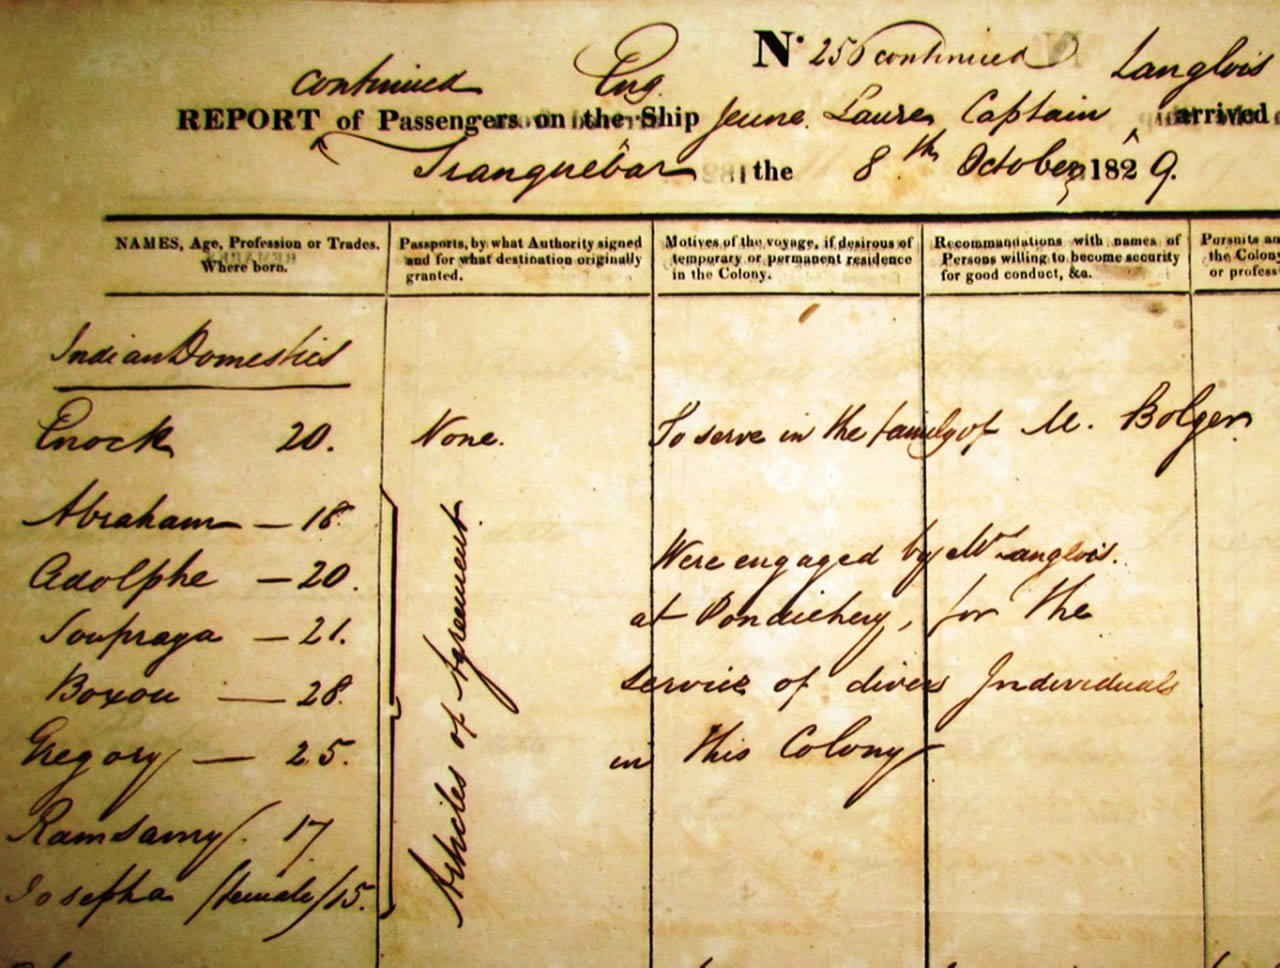 No. 250 continued
continued Eng. Langlois
REPORT of Passengers on the Ship Jeune Laure Captain arrived
Tranquebar the 8th October 1829.
NAMES, Age, Profession or Trades.
Where born.
Passports, by what Authority signed
and for what destination originally
granted.
Motives of the voyage, if desirous of
temporary or permanent residence
in the Colony.
Recommandations with names of
Persons willing to become security
for good conduct, &a.
Pursuits
the Colony
or profess
Indian Domestics
Enock 20. None. To serve in the family of M. Bolger
Abraham — 18.
Adolphe — 20.
Soupraya — 21.
Boxou — 28.
Gregory — 25.
Ramsamy 17
Josepha /female/ 15.
Articles of Agreement.
Were engaged by Mr Langlois.
at Pondichery, for the
service of divers Individuals
in this Colony